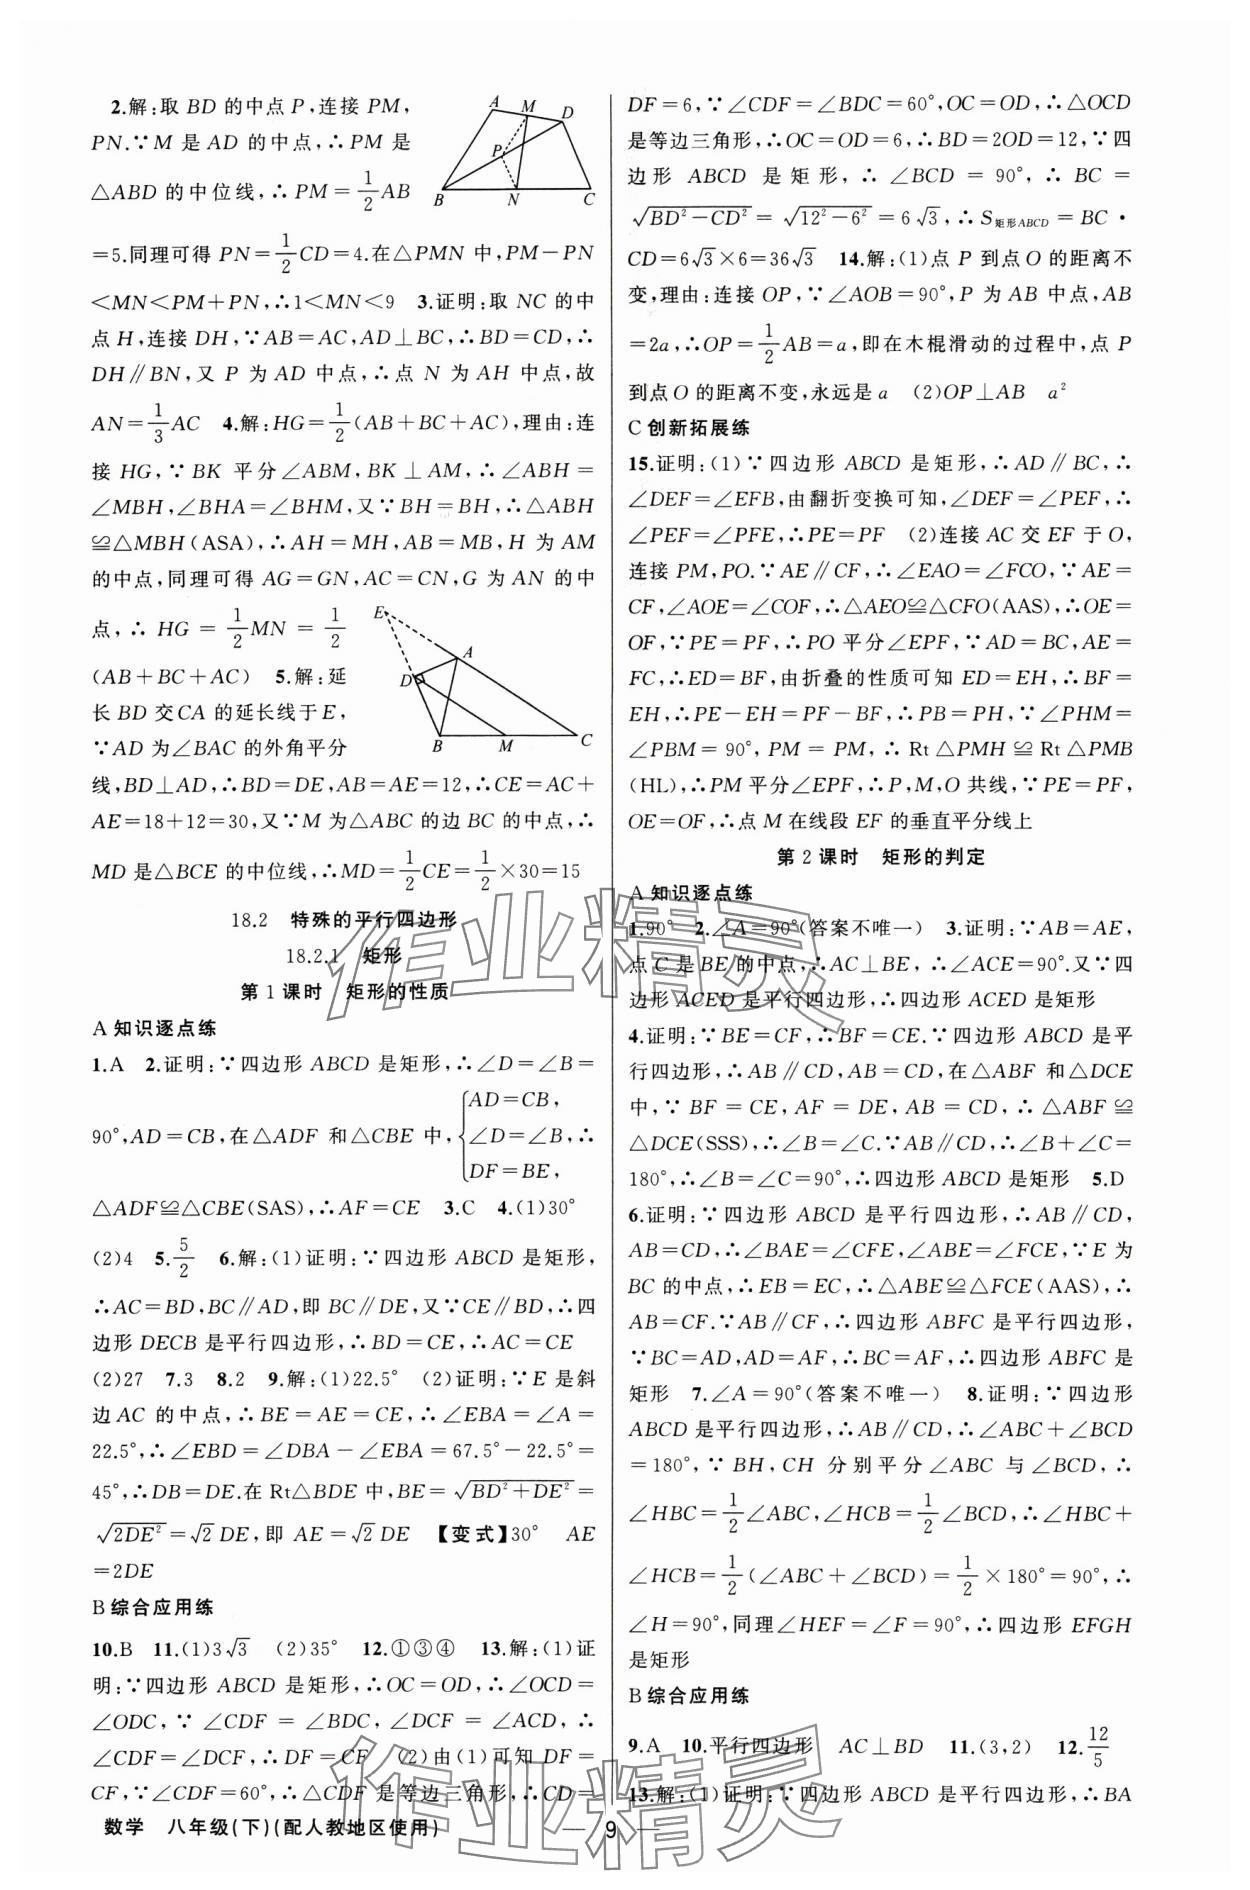 2.解:取 BD 的中点 P,连接 PM,
PN.∵M 是 AD 的中点,∴PM 是
△ABD 的中位线,∴PM=1/2AB
=5.同理可得 PN=1/2CD=4.在△PMN 中,PM-PN
<MN<PM+PN,∴1<MN<9 3.证明:取 NC 的中
点 H,连接 DH,∵AB=AC,AD⊥BC,∴BD=CD,∴
DH∥BN,又 P 为 AD 中点,∴点 N 为 AH 中点,故
AN=1/3AC 4.解:HG=1/2(AB+BC+AC),理由:连
接 HG,∵BK 平分∠ABM,BK⊥AM,∴∠ABH=
∠MBH,∠BHA=∠BHM,又∵BH=BH,∴△ABH
≌△MBH(ASA),∴AH=MH,AB=MB,H 为 AM
的中点,同理可得 AG=GN,AC=CN,G 为 AN 的中
点,∴HG=1/2MN=1/2
(AB+BC+AC) 5.解:延
长 BD 交CA 的延长线于E,
∵AD 为∠BAC 的外角平分
线,BD⊥AD,∴BD=DE,AB=AE=12,∴CE=AC+
AE=18+12=30,又∵M 为△ABC 的边 BC 的中点,∴
MD 是△BCE 的中位线,∴MD=1/2CE=1/2×30=15
A M D P B N C
E A D B M C
18.2 特殊的平行四边形
18.2.1 矩形
第 1 课时 矩形的性质
A 知识逐点练
1.A 2.证明:∵四边形 ABCD 是矩形,∴∠D=∠B=
90°,AD=CB,在△ADF 和△CBE 中,{AD=CB,
∠D=∠B,∴
DF=BE,
△ADF≌△CBE(SAS),∴AF=CE 3.C 4.(1)30°
(2)4 5.5/2 6.解:(1)证明:∵四边形 ABCD 是矩形,
∴AC=BD,BC∥AD,即 BC∥DE,又∵CE∥BD,∴四
边形 DECB 是平行四边形,∴BD=CE,∴AC=CE
(2)27 7.3 8.2 9.解:(1)22.5° (2)证明:∵E 是斜
边AC 的中点,∴BE=AE=CE,∴∠EBA=∠A=
22.5°,∴∠EBD=∠DBA-∠EBA=67.5°-22.5°=
45°,∴DB=DE.在 Rt△BDE 中,BE=√(BD²+DE²)=
√(2DE²)=√2DE,即 AE=√2DE 【变式】30° AE
=2DE
B 综合应用练
10.B 11.(1)3√3 (2)35° 12.①③④ 13.解:(1)证
明:∵四边形 ABCD 是矩形,∴OC=OD,∴∠OCD=
∠ODC,∵∠CDF=∠BDC,∠DCF=∠ACD,∴
∠CDF=∠DCF,∴DF=CF (2)由(1)可知 DF=
CF,∵∠CDF=60°,∴△CDF 是等边三角形,∴CD=
DF=6,∵∠CDF=∠BDC=60°,OC=OD,∴△OCD
是等边三角形,∴OC=OD=6,∴BD=2OD=12,∵四
边形 ABCD 是矩形,∴∠BCD=90°,∴BC=
√(BD²-CD²)=√(12²-6²)=6√3,∴S矩形ABCD=BC·
CD=6√3×6=36√3 14.解:(1)点 P 到点O 的距离不
变,理由:连接 OP,∵∠AOB=90°,P 为 AB 中点,AB
=2a,∴OP=1/2AB=a,即在木棍滑动的过程中,点 P
到点O 的距离不变,永远是 a (2)OP⊥AB a²
C 创新拓展练
15.证明:(1)∵四边形 ABCD 是矩形,∴AD∥BC,∴
∠DEF=∠EFB,由翻折变换可知,∠DEF=∠PEF,∴
∠PEF=∠PFE,∴PE=PF (2)连接 AC 交 EF 于O,
连接 PM,PO.∵AE∥CF,∴∠EAO=∠FCO,∵AE=
CF,∠AOE=∠COF,∴△AEO≌△CFO(AAS),∴OE=
OF,∵PE=PF,∴PO 平分∠EPF,∵AD=BC,AE=
FC,∴ED=BF,由折叠的性质可知 ED=EH,∴BF=
EH,∴PE-EH=PF-BF,∴PB=PH,∵∠PHM=
∠PBM=90°,PM=PM,∴Rt△PMH≌Rt△PMB
(HL),∴PM 平分∠EPF,∴P,M,O 共线,∵PE=PF,
OE=OF,∴点 M 在线段 EF 的垂直平分线上
第 2 课时 矩形的判定
A 知识逐点练
1.90° 2.∠A=90°(答案不唯一) 3.证明:∵AB=AE,
点 C 是 BE 的中点,∴AC⊥BE,∴∠ACE=90°.又∵四
边形 ACED 是平行四边形,∴四边形 ACED 是矩形
4.证明:∵BE=CF,∴BF=CE.∵四边形 ABCD 是平
行四边形,∴AB∥CD,AB=CD,在△ABF 和△DCE
中,∵BF=CE,AF=DE,AB=CD,∴△ABF≌
△DCE(SSS),∴∠B=∠C.∵AB∥CD,∴∠B+∠C=
180°,∴∠B=∠C=90°,∴四边形 ABCD 是矩形 5.D
6.证明:∵四边形 ABCD 是平行四边形,∴AB∥CD,
AB=CD,∴∠BAE=∠CFE,∠ABE=∠FCE,∵E 为
BC 的中点,∴EB=EC,∴△ABE≌△FCE(AAS),∴
AB=CF.∵AB∥CF,∴四边形 ABFC 是平行四边形,
∵BC=AD,AD=AF,∴BC=AF,∴四边形 ABFC 是
矩形 7.∠A=90°(答案不唯一) 8.证明:∵四边形
ABCD 是平行四边形,∴AB∥CD,∴∠ABC+∠BCD
=180°,∵BH,CH 分别平分∠ABC 与∠BCD,∴
∠HBC=1/2∠ABC,∠HCB=1/2∠BCD,∴∠HBC+
∠HCB=1/2(∠ABC+∠BCD)=1/2×180°=90°,∴
∠H=90°,同理∠HEF=∠F=90°,∴四边形 EFGH
是矩形
B 综合应用练
9.A 10.平行四边形 AC⊥BD 11.(3,2) 12.12/5
13.解:(1)证明:∵四边形 ABCD 是平行四边形,∴BA
数学 八年级(下)(配人教地区使用) — 9 —
作业精灵
作业精灵